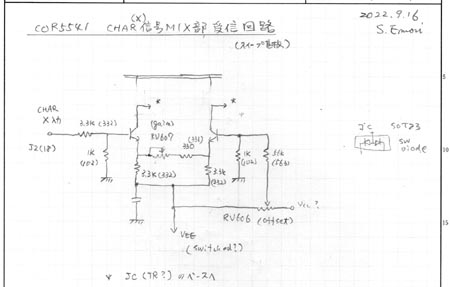 (X)
COR5541 CHAR信号MIX部受信回路
2022.9.16
S.Emori
(スイープ基板)
*
*
CHAR
X入力
3.3K (332)
J2(18)
1K
(102)
(gain)
RV607
330
(331)
3.3K(332)
3.3K
(332)
1K
(102)
56K
(563)
JC
SOT23
SW
Diode
RV606 (offset)
Vcc?
VEE
(switched?)
* JC(TR?)のベースへ
5
10
15